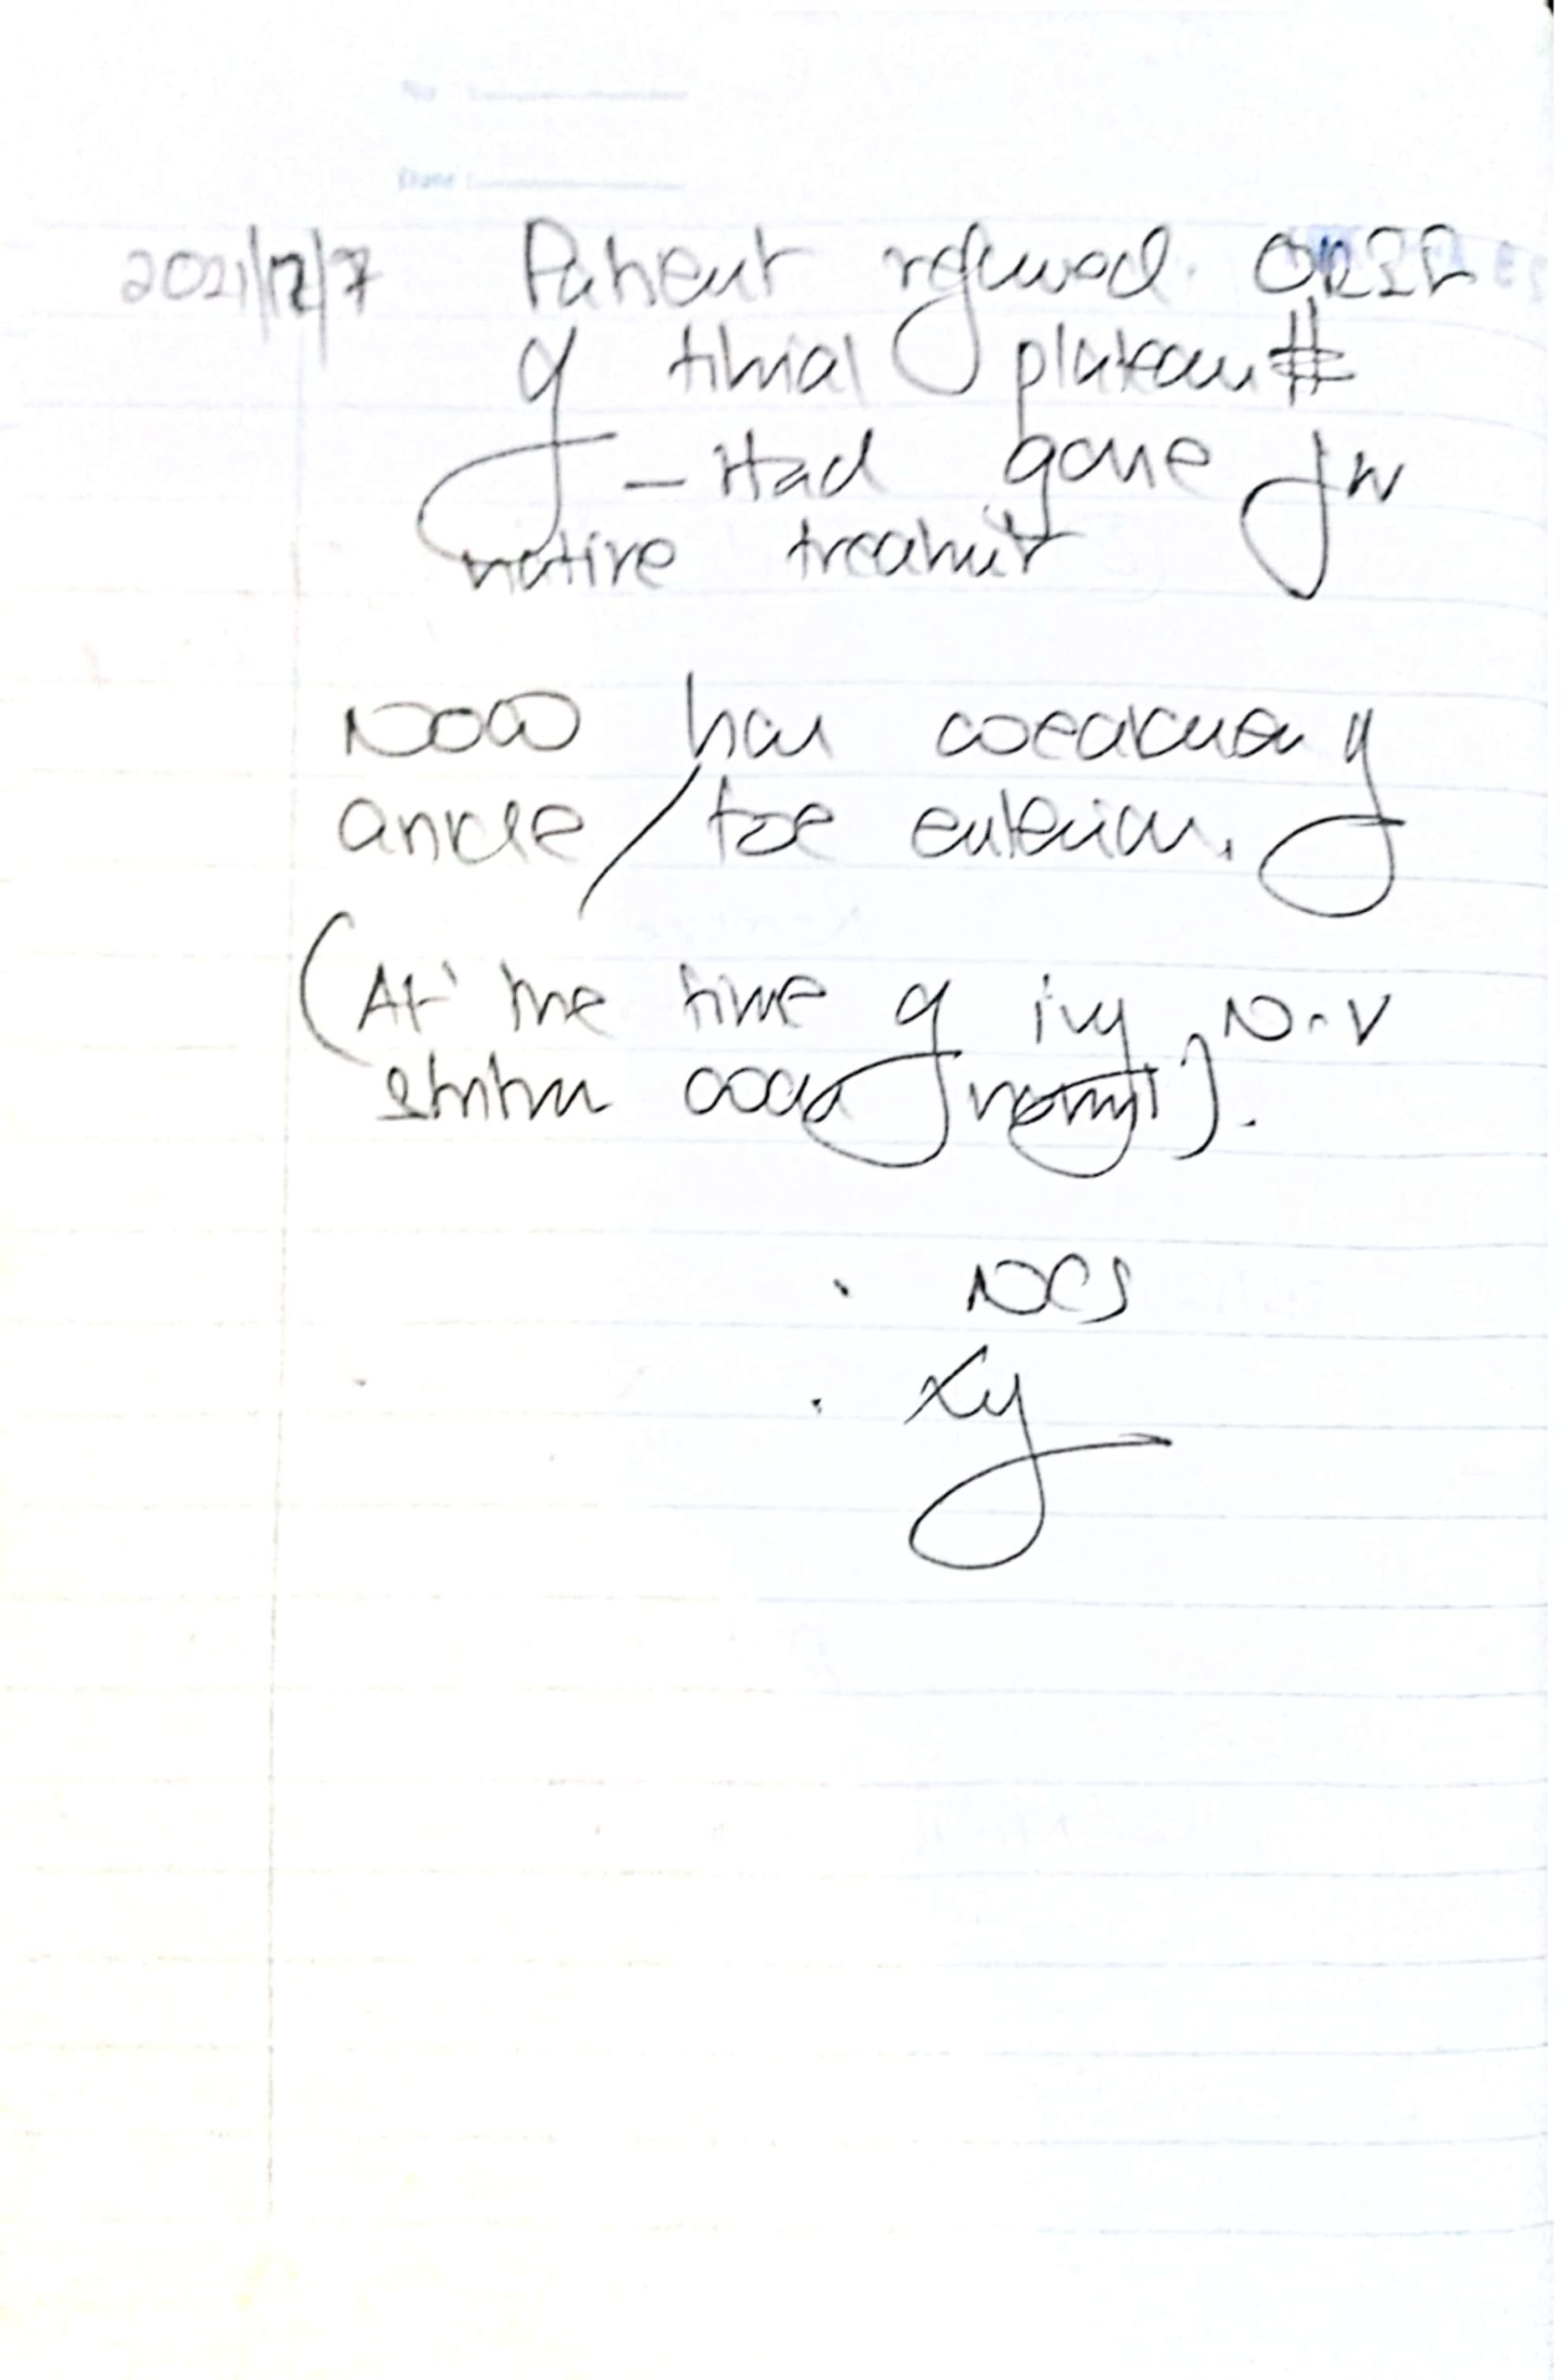 No :
Date :
2021/12/7 Patient refused. ORIF
of tibial plateau #
- Had gone for
native treatmt
Now has weakness of
ankle / toe extension.
(At the time of inj, N-V
status was normal).
. NCS
. Xy